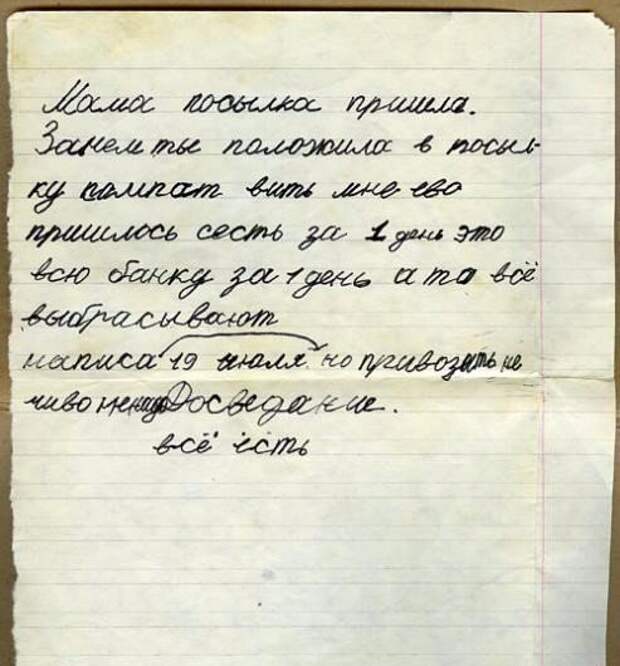 Мама посылка пришла.
Зачем ты положила в посыл-
ку кампат вить мне ево
пришлось сесть за 1 день это
всю банку за 1 день а та всё
выбрасывают
написа 19 июля. но привозить не
чиво не надо Досведание.
всё есть